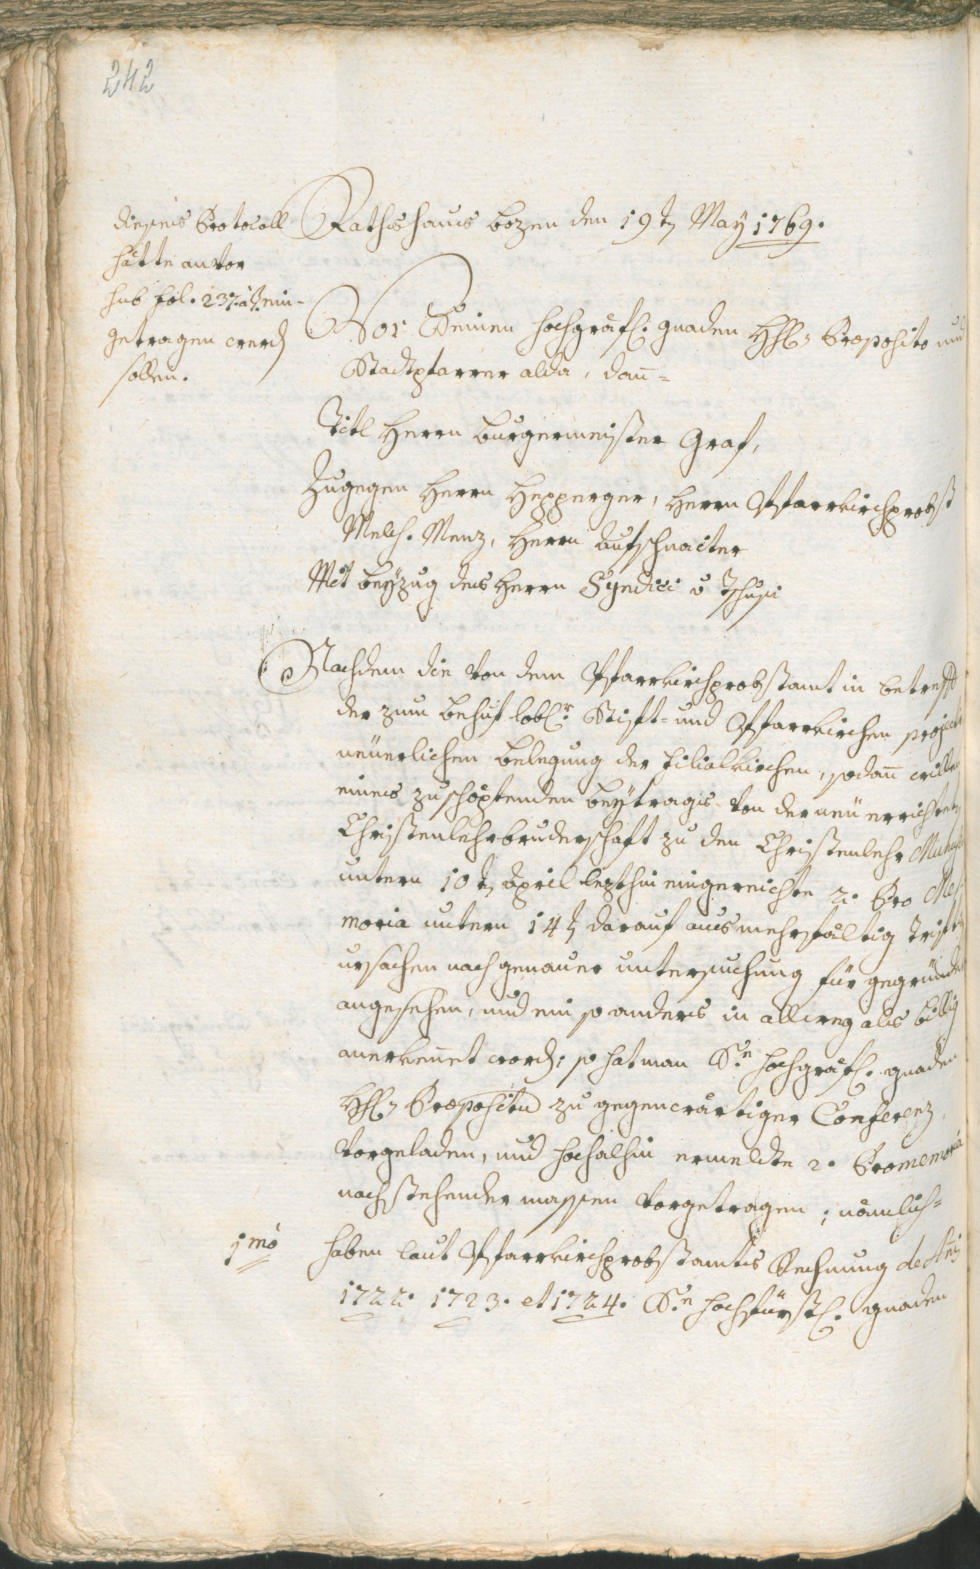 242
dieses Protocoll
hätte anvor
sub fol. 237. à t. ein-
getragen werd
sollen.
Rathshaus Bozen den 19t May 1769.
Vor Seinen hochgräfl. gnaden HH. Præposito und
Stadtpfarrer alda, dan̄=
Titl Herrn Burgermeister Graf,
Zugegen Herrn Hepperger, Herrn Pfarrkirchprobst
Melch. Menz, Herrn Aufschnaiter
Mit beyzug des Herrn Syndici v Tschusi
Nachdem die von dem Pfarrkirchprobstamt in betreff
der zum behuf löbl.r Stift- und Pfarrkirchen
neüerlichen belegung der Filialkirchen, sodan̄
eines zuschöpfenden beytrags von der neü errichten
Christenlehrbruderschaft zu den Christenlehr
untern 10t April lezthin eingereichte 2. Pro Me-
moria untern 14t darauf aus mehrfältig trift
ursachen nach genauer untersuchung für gegründet
angesehen, und ein so anders in allweg als billig
anerkennet word; so hat man S.n hochgräfl. gnaden
HH. Præpositū zu gegenwärtiger Conferenz
vorgeladen, und hochalhin ermeldte 2. Promemoria
nachstehender massen vorgetragen; nämlich=
1mo haben laut Pfarrkirchprobstamts Rechnung de Anis
1722. 1723. et 1724. S.n hochfürstl. gnaden